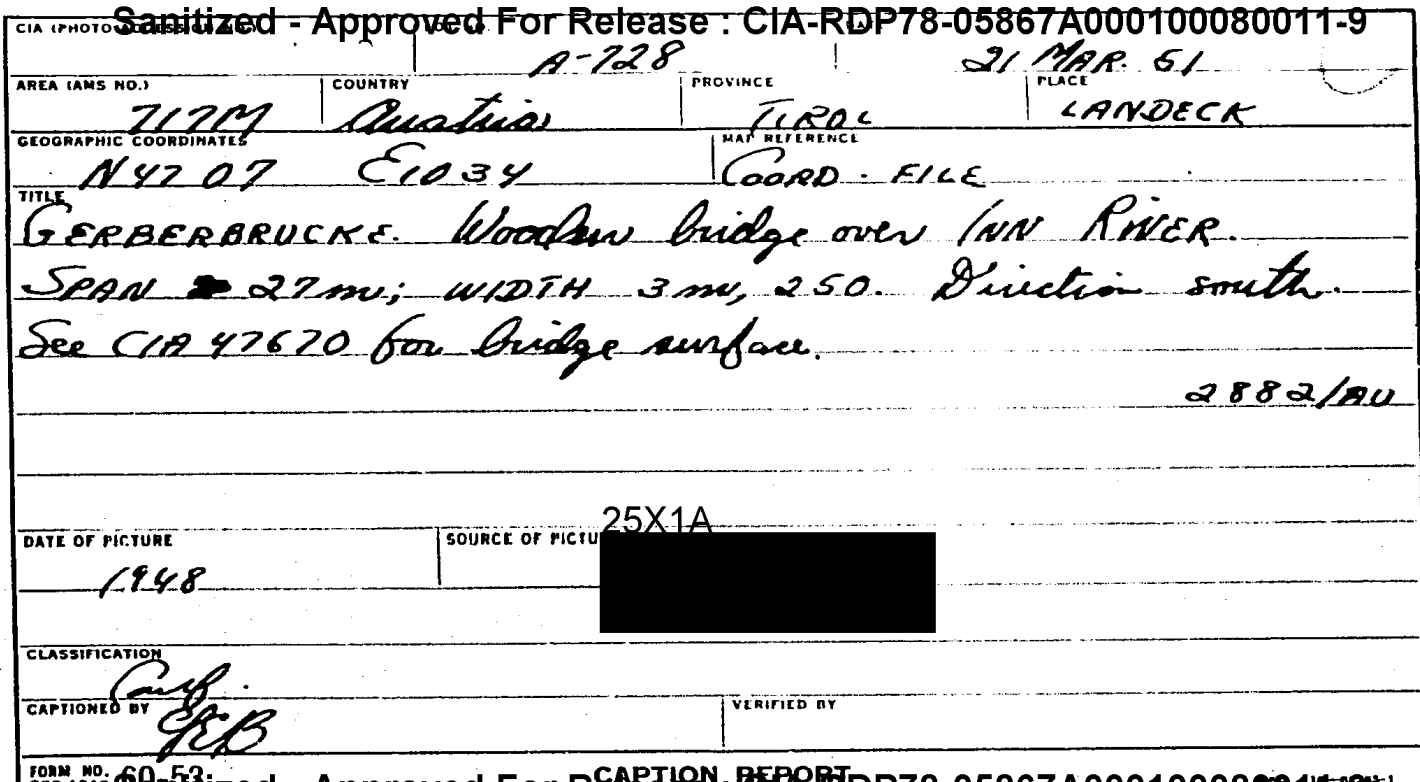 Sanitized - Approved For Release : CIA-RDP78-05867A000100080011-9
CIA (PHOTO
A-728 21 MAR. 51
AREA (AMS NO.) COUNTRY PROVINCE PLACE
717M Austria TIROL LANDECK
GEOGRAPHIC COORDINATES MAP REFERENCE
N47 07 E1034 COORD. FILE
TITLE
GERBERBRUCKE. Wooden bridge over INN RIVER.
SPAN 27m; WIDTH 3m, 250. Direction south.
See CIA 47670 for bridge surface.
2882/AU
25X1A
DATE OF PICTURE SOURCE OF PICTU
1948
CLASSIFICATION
Conf.
CAPTIONED BY VERIFIED BY
FORM NO. 60-53
CAPTION REPORT